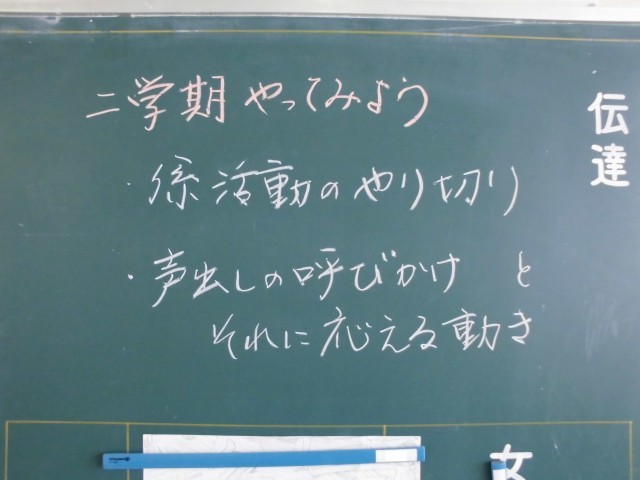 二学期やってみよう
・係活動のやり切り
・声出しの呼びかけ と
それに応える動き
伝達
女